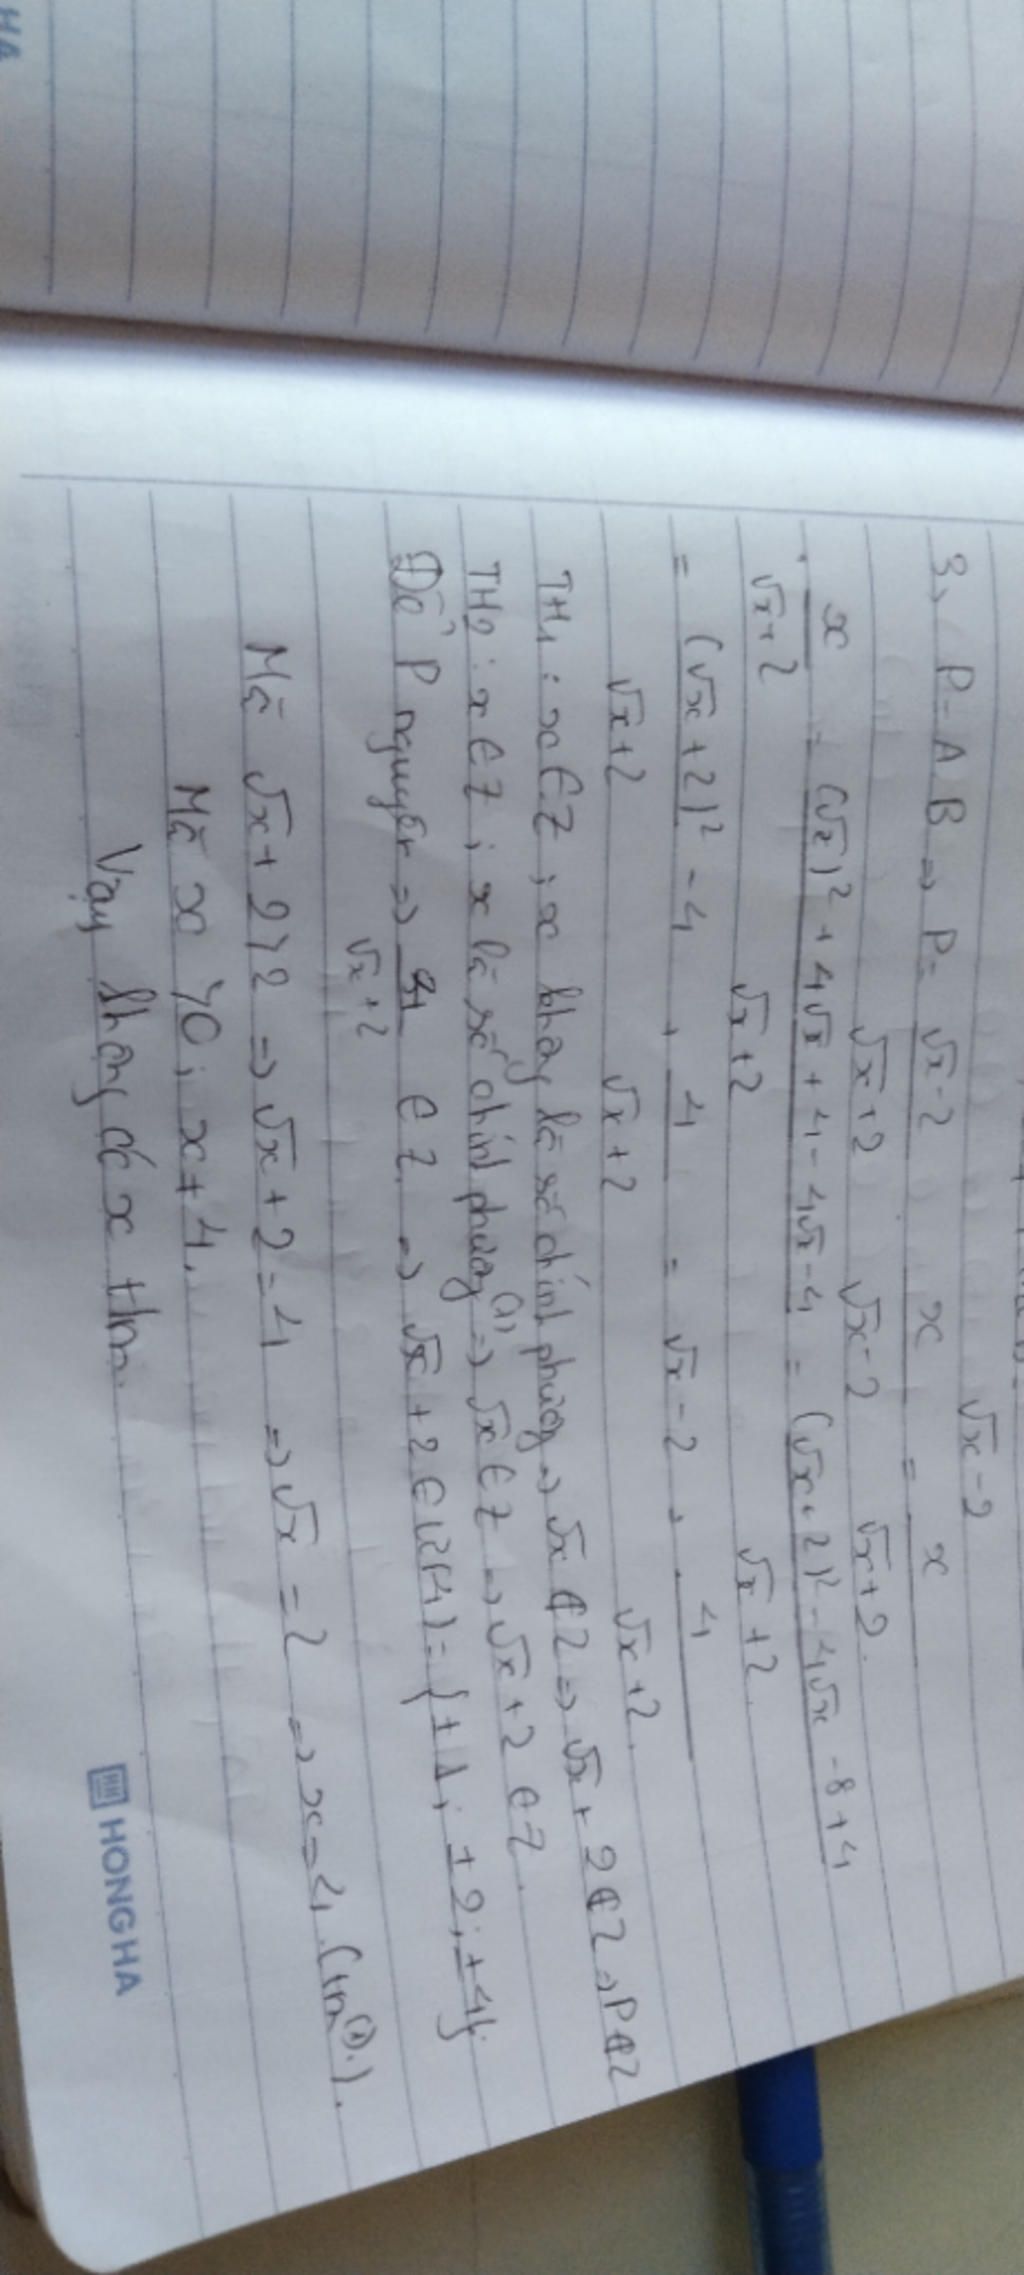 √x-2
3, P=A.B => P= √x-2 / √x+2 . x / √x-2 = x / √x+2.
x / √x+2 = (√x)² + 4√x + 4 - 4√x - 4 / √x+2 = (√x+2)² - 4√x - 8 + 4 / √x+2
= (√x+2)² - 4 / √x+2 + 4 / √x+2 = √x-2 + 4 / √x+2.
TH1: x∈Z; x không là số chính phương => √x∉Z => √x+2∉Z => P∉Z
TH2: x∈Z; x là số chính phương (1) => √x∈Z => √x+2∈Z.
Để P nguyên => 4 / √x+2 ∈ Z => √x+2 ∈ Ư(4) = {±1; ±2; ±4}.
Mà √x+2>2 => √x+2=4 => √x=2 => x=4 (tm(1)).
Mà x>0; x≠4.
Vậy không có x tm.
HONG HA
HA